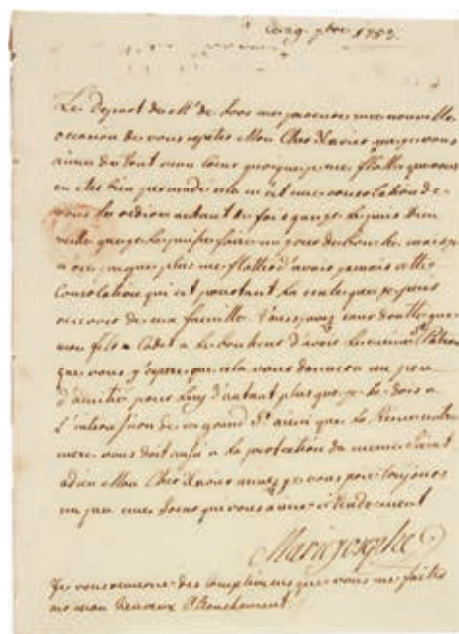 ce 29 9bre 1753.
Le Depart du Mr de Loos me procure une nouvelle
occasion de vous repeter Mon Cher Xavier que je vous
aime de tout mon Coeur quoique je me flatte que vous
en etes bien persuadé c'est une consolation de
vous le redire autant de fois que je le puis Dieu
veuille que je le puisse faire un jour de bouche mais je
n'ose plus me flatter d'avoir jamais cette
Consolation qui est pourtant la seule que je puis
recevoir de ma famille Vous savez sans doutte que
mon fils Cadet a le bonheur d'avoir le meme St Patron
que vous j'espere que cela vous donnera un peu
d'amitié pour luy d'autant plus que je le dois a
l'intercession de ce grand St ainsi que la
mere vous doit a la protection du meme Saint
adieu Mon Cher Xavier aimez je vous prie toujours
un peu une Soeur qui vous aime tendrement
Mariejosephe
Je vous remercie des complimens que vous me faites
sur mon heureux Accouchement